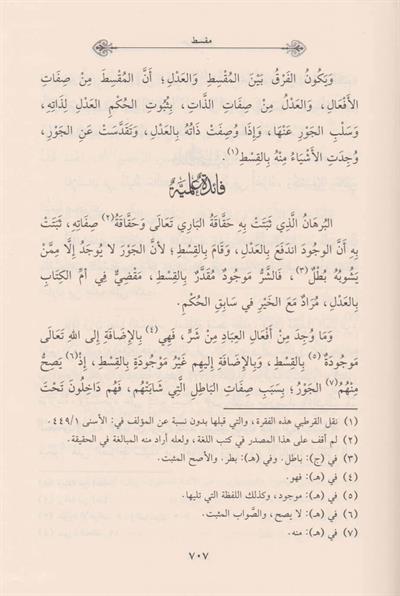 مقسط
وَيَكُونُ الفَرْقُ بَيْنَ المُقْسِطِ وَالعَدْلِ؛ أَنَّ المُقْسِطَ مِنْ صِفَاتِ
الأَفْعَالِ، وَالعَدْلَ مِنْ صِفَاتِ الذَّاتِ، بِثُبُوتِ الحُكْمِ العَدْلِ لِذَاتِهِ،
وَسَلْبِ الجَوْرِ عَنْهَا، وَإِذَا وُصِفَتْ ذَاتُهُ بِالعَدْلِ، وَتَقَدَّسَتْ عَنِ الجَوْرِ،
وُجِدَتِ الأَشْيَاءُ مِنْهُ بِالقِسْطِ(١).
فائدة علمية
البُرْهَانُ الَّذِي ثَبَتَتْ بِهِ حَقَّاقَةُ البَارِي تَعَالَى وَحَقَّاقَةُ(٢) صِفَاتِهِ، ثَبَتَتْ
بِهِ أَنَّ الوُجُودَ انْدَفَعَ بِالعَدْلِ، وَقَامَ بِالقِسْطِ؛ لأنَّ الجَوْرَ لَا يُوجَدُ إِلَّا مِمَّنْ
يَشُوبُهُ بُطْلٌ(٣)، فَالشَّرُّ مَوْجُودٌ مُقَدَّرٌ بِالقِسْطِ، مَقْضِيٌّ فِي أُمِّ الكِتَابِ
بِالعَدْلِ، مُرَادٌ مَعَ الخَيْرِ فِي سَابِقِ الحُكْمِ.
وَمَا وُجِدَ مِنْ أَفْعَالِ العِبَادِ مِنْ شَرٍّ، فَهِي(٤) بِالإِضَافَةِ إِلى اللهِ تَعَالَى
مَوجُودَةٌ(٥) بِالقِسْطِ، وَبِالإِضَافَةِ إِليهِم غَيْرُ مَوْجُودَةٍ بِالقِسْطِ، إِذْ(٦) يَصِحُّ
مِنْهُمُ(٧) الجَوْرُ؛ بِسَبَبِ صِفَاتِ البَاطِلِ الَّتِي شَابَتْهُم، فَهُم دَاخِلُونَ تَحْتَ
(١) نقل القرطبي هذه الفقرة، والتي قبلها بدون نسبة عن المؤلف في: الأسنى ٤٤٩/١.
(٢) لم أقف على هذا المصدر في كتب اللغة، ولعله أراد منه المبالغة في الحقيقة.
(٣) في (ج): باطل. وفي (هـ): بطر. والأصح المثبت.
(٤) في (هـ): فهو.
(٥) في (هـ): موجود، وكذلك اللفظة التي تليها.
(٦) في (هـ): لا يصح، والصَّواب المثبت.
(٧) في (هـ): منه.
٧٠٧